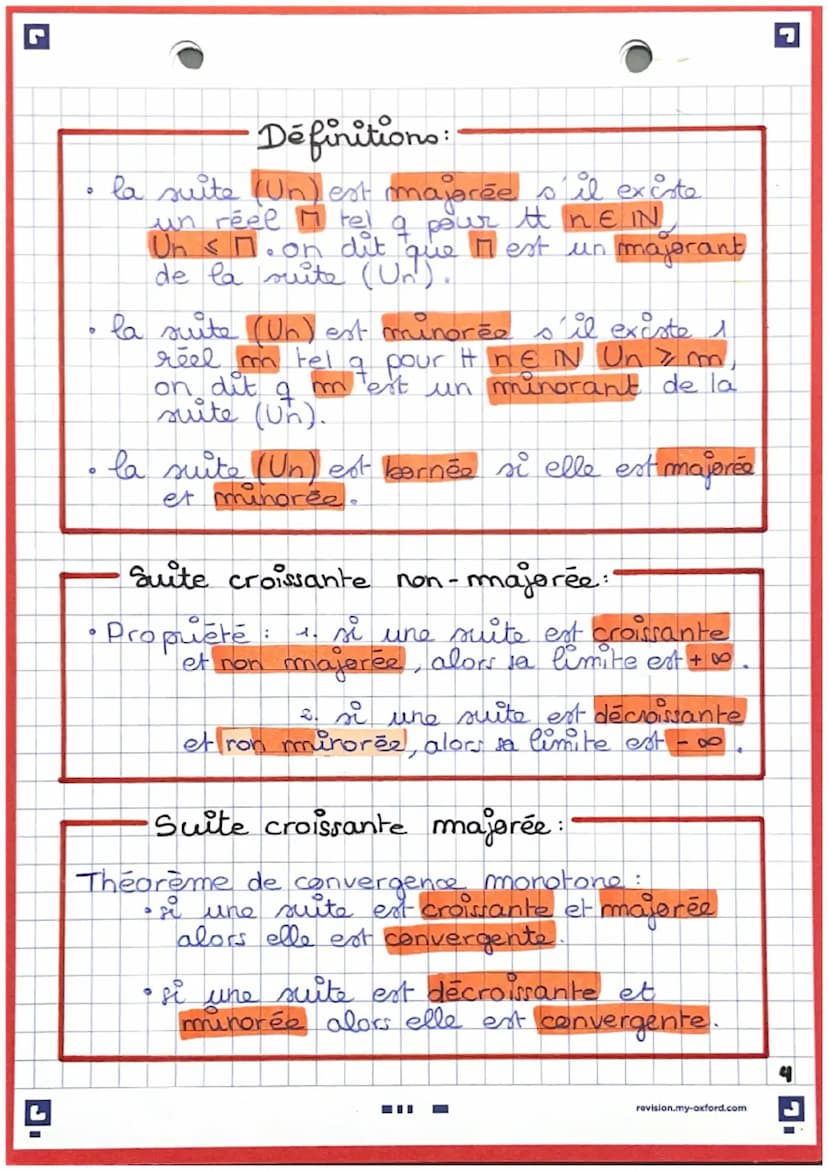 Définitions:
• la suite (Un) est majorée s'il existe
un réel M tel q pour tt n ∈ ℕ,
Un ≤ M. on dit que M est un majorant
de la suite (Un).
• la suite (Un) est minorée s'il existe 1
réel m tel q pour tt n ∈ ℕ Un ≥ m,
on dit q m est un minorant de la
suite (Un).
• la suite (Un) est bornée si elle est majorée
et minorée.
Suite croissante non-majorée:
• Propriété : 1. si une suite est croissante
et non majorée, alors sa limite est + ∞.
2. si une suite est décroissante
et non minorée, alors sa limite est - ∞.
Suite croissante majorée:
Théorème de convergence monotone:
• si une suite est croissante et majorée
alors elle est convergente.
• si une suite est décroissante et
minorée alors elle est convergente.
4
revision.my-oxford.com